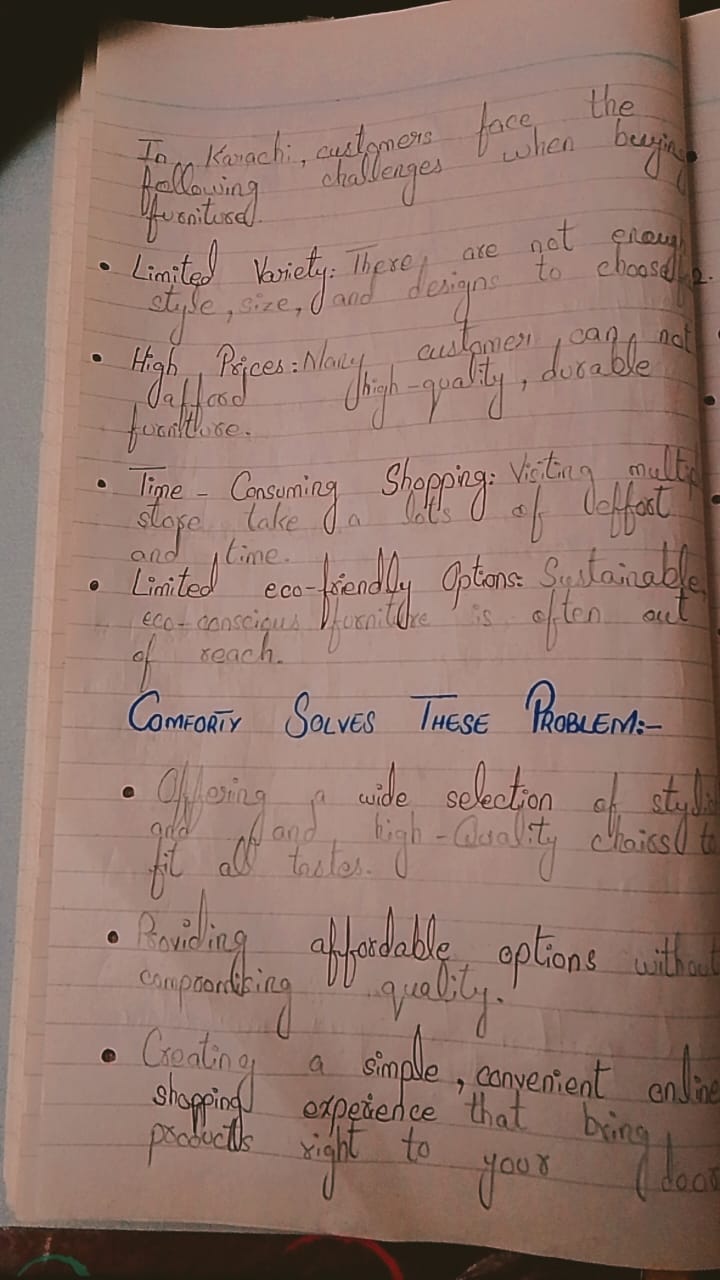 In Karachi, customers face the
following challenges when buying
furniture.
• Limited Variety: There are not enough
style, size, and designs to choose.
• High Prices: Many customer can not
afford high-quality, durable
furniture.
• Time - Consuming Shopping: Visiting multip
store take a lots of effort
and time.
• Limited eco-friendly Options: Sustainable,
eco-conscious furniture is often out
of reach.
COMFORTY SOLVES THESE PROBLEM:-
• Offering a wide selection of styli
and and high-Quality chairs to
fit all tastes.
• Providing affordable options without
compromising quality.
• Creating a simple, convenient online
shopping experience that bring
products right to your door